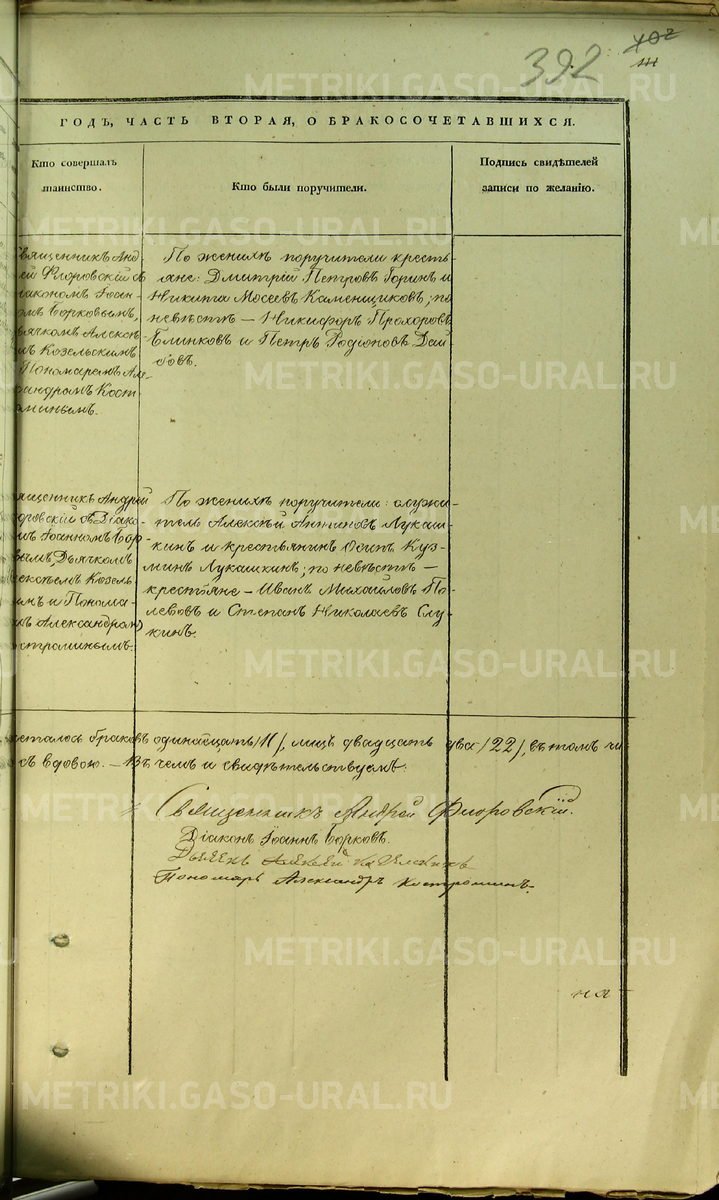 392
402
ГОДЪ, ЧАСТЬ ВТОРАЯ, О БРАКОСОЧЕТАВШИХСЯ.
Кто совершалъ
таинство.
Кто были поручители.
Подпись свидѣтелей
записи по желанію.
вященникъ Анд
ей Флоровскій съ
іакономъ Іоан
омъ Борковымъ,
ьячкомъ Алексѣ
мъ Козельскимъ
Пономаремъ Але
андромъ Кост
миннымъ.
По женихѣ поручители кресть
яне: Дмитрій Петровъ Горинъ и
Никита Мосеевъ Каменщиковъ; по
невѣстѣ — Никифоръ Прохоровъ
Блинковъ и Петръ Родіоновъ
бовъ.
ященникъ Андрей
оровскій съ Діако
мъ Іоанномъ Бор
вымъ, Дьячкомъ
ексѣемъ Козель
имъ и Понома
мъ Александромъ
строминымъ.
По женихѣ поручители: служи
тель Алексѣй Антиповъ Лукаш
кинъ и крестьянинъ Осипъ Куз
минъ Лукашкинъ; по невѣстѣ —
крестьяне — Иванъ Михайловъ По
левовъ и Степанъ Николаевъ Слу
кинъ.
еталось браковъ одинадцать /11/, лицъ двадцать два /22/, въ томъ чи
съ вдовою. — Въ чемъ и свидѣтельствуемъ:
Священникъ Андрей Флоровскій.
Діаконъ Іоаннъ Борковъ.
Дьячекъ Алексей
Пономарь Александръ Костроминъ.
на
METRIKI.GASO-URAL.RU